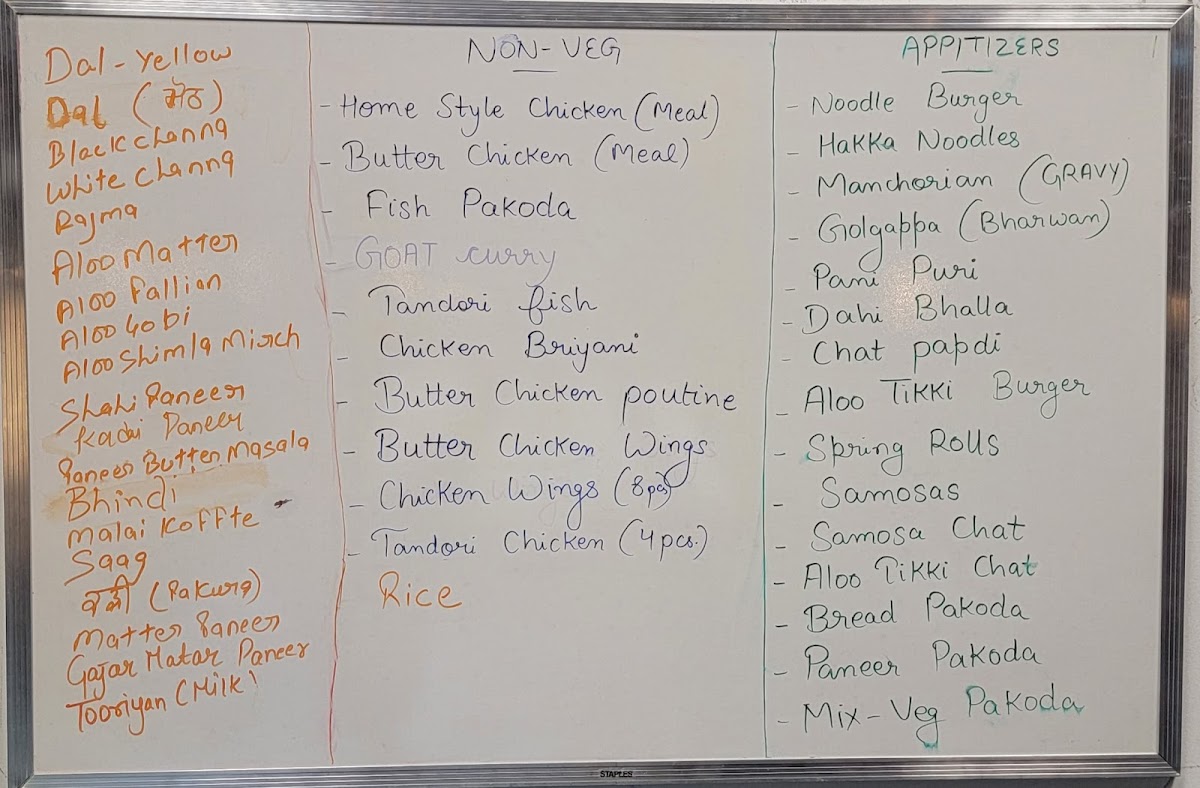 Dal - Yellow
Dal (ਮੋਠ)
Black channa
White channa
Rajma
Aloo Matter
Aloo fallian
Aloo Gobi
Aloo Shimla Mirch
Shahi Paneer
Kadai Paneer
Paneer Butter Masala
Bhindi
Malai Koffte
Saag
कढ़ी (Pakura)
Matter Paneer
Gajar Matar Paneer
Tooriyan (Milk)
NON-VEG
- Home Style Chicken (Meal)
- Butter Chicken (Meal)
- Fish Pakoda
- GOAT curry
- Tandori fish
- Chicken Briyani
- Butter Chicken poutine
- Butter Chicken Wings
- Chicken Wings (8pcs)
- Tandori Chicken (4pcs.)
Rice
APPITIZERS
- Noodle Burger
- Hakka Noodles
- Manchorian (GRAVY)
- Golgappa (Bharwan)
- Pani Puri
- Dahi Bhalla
- Chat papdi
- Aloo Tikki Burger
- Spring Rolls
- Samosas
- Samosa Chat
- Aloo Tikki Chat
- Bread Pakoda
- Paneer Pakoda
- Mix-Veg Pakoda
STAPLES